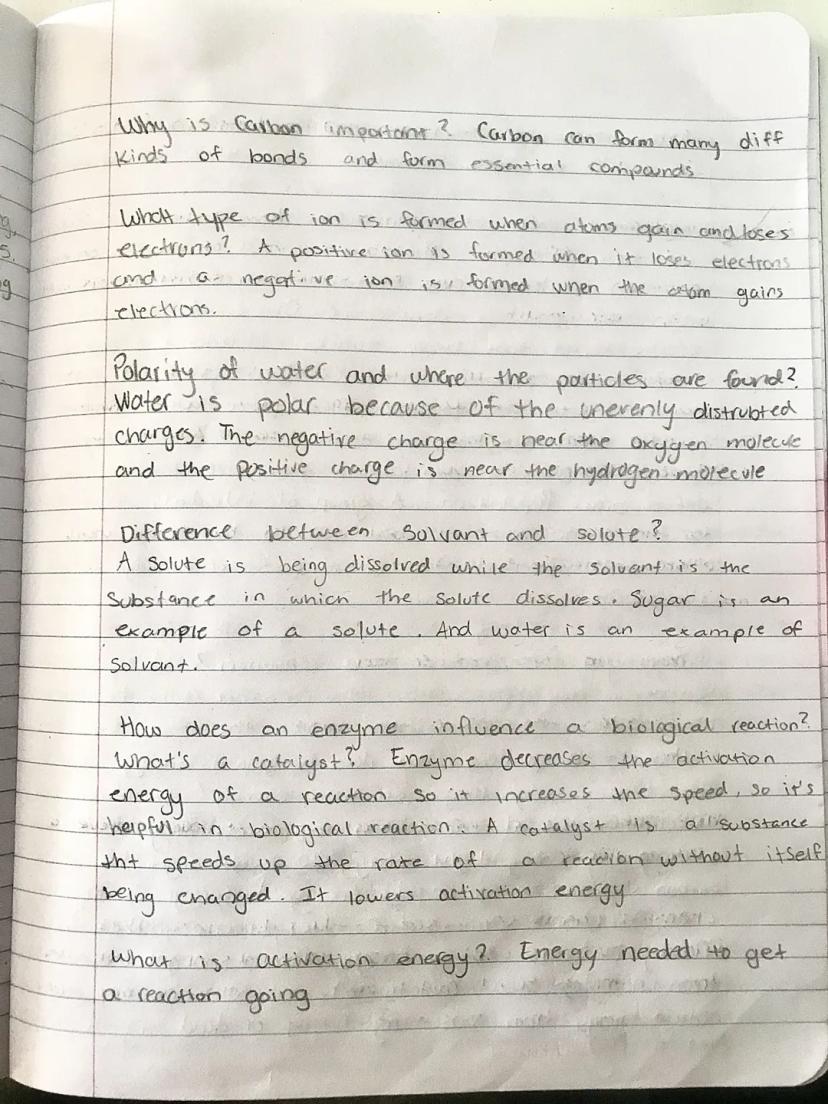 Why is Carbon important? Carbon can form many diff
kinds of bonds and form essential compounds
What type of ion is formed when atoms gain and loses
electrons? A positive ion is formed when it loses electrons
and a negative ion is formed when the atom gains
electrons.
Polarity of water and where the particles are found?
Water is polar because of the unevenly distrubted
charges. The negative charge is near the oxygen molecule
and the positive charge is near the hydrogen molecule
Difference between Solvant and solute?
A Solute is being dissolved while the Solvant is the
Substance in which the Solute dissolves. Sugar is an
example of a solute. And water is an example of
Solvant.
How does an enzyme influence a biological reaction?
What's a catalyst? Enzyme decreases the activation
energy of a reaction so it increases the speed, so it's
helpful in biological reaction. A catalyst is a substance
tht speeds up the rate of a reacion without itself
being changed. It lowers activation energy
What is activation energy? Energy needed to get
a reaction going
g,
s.
g